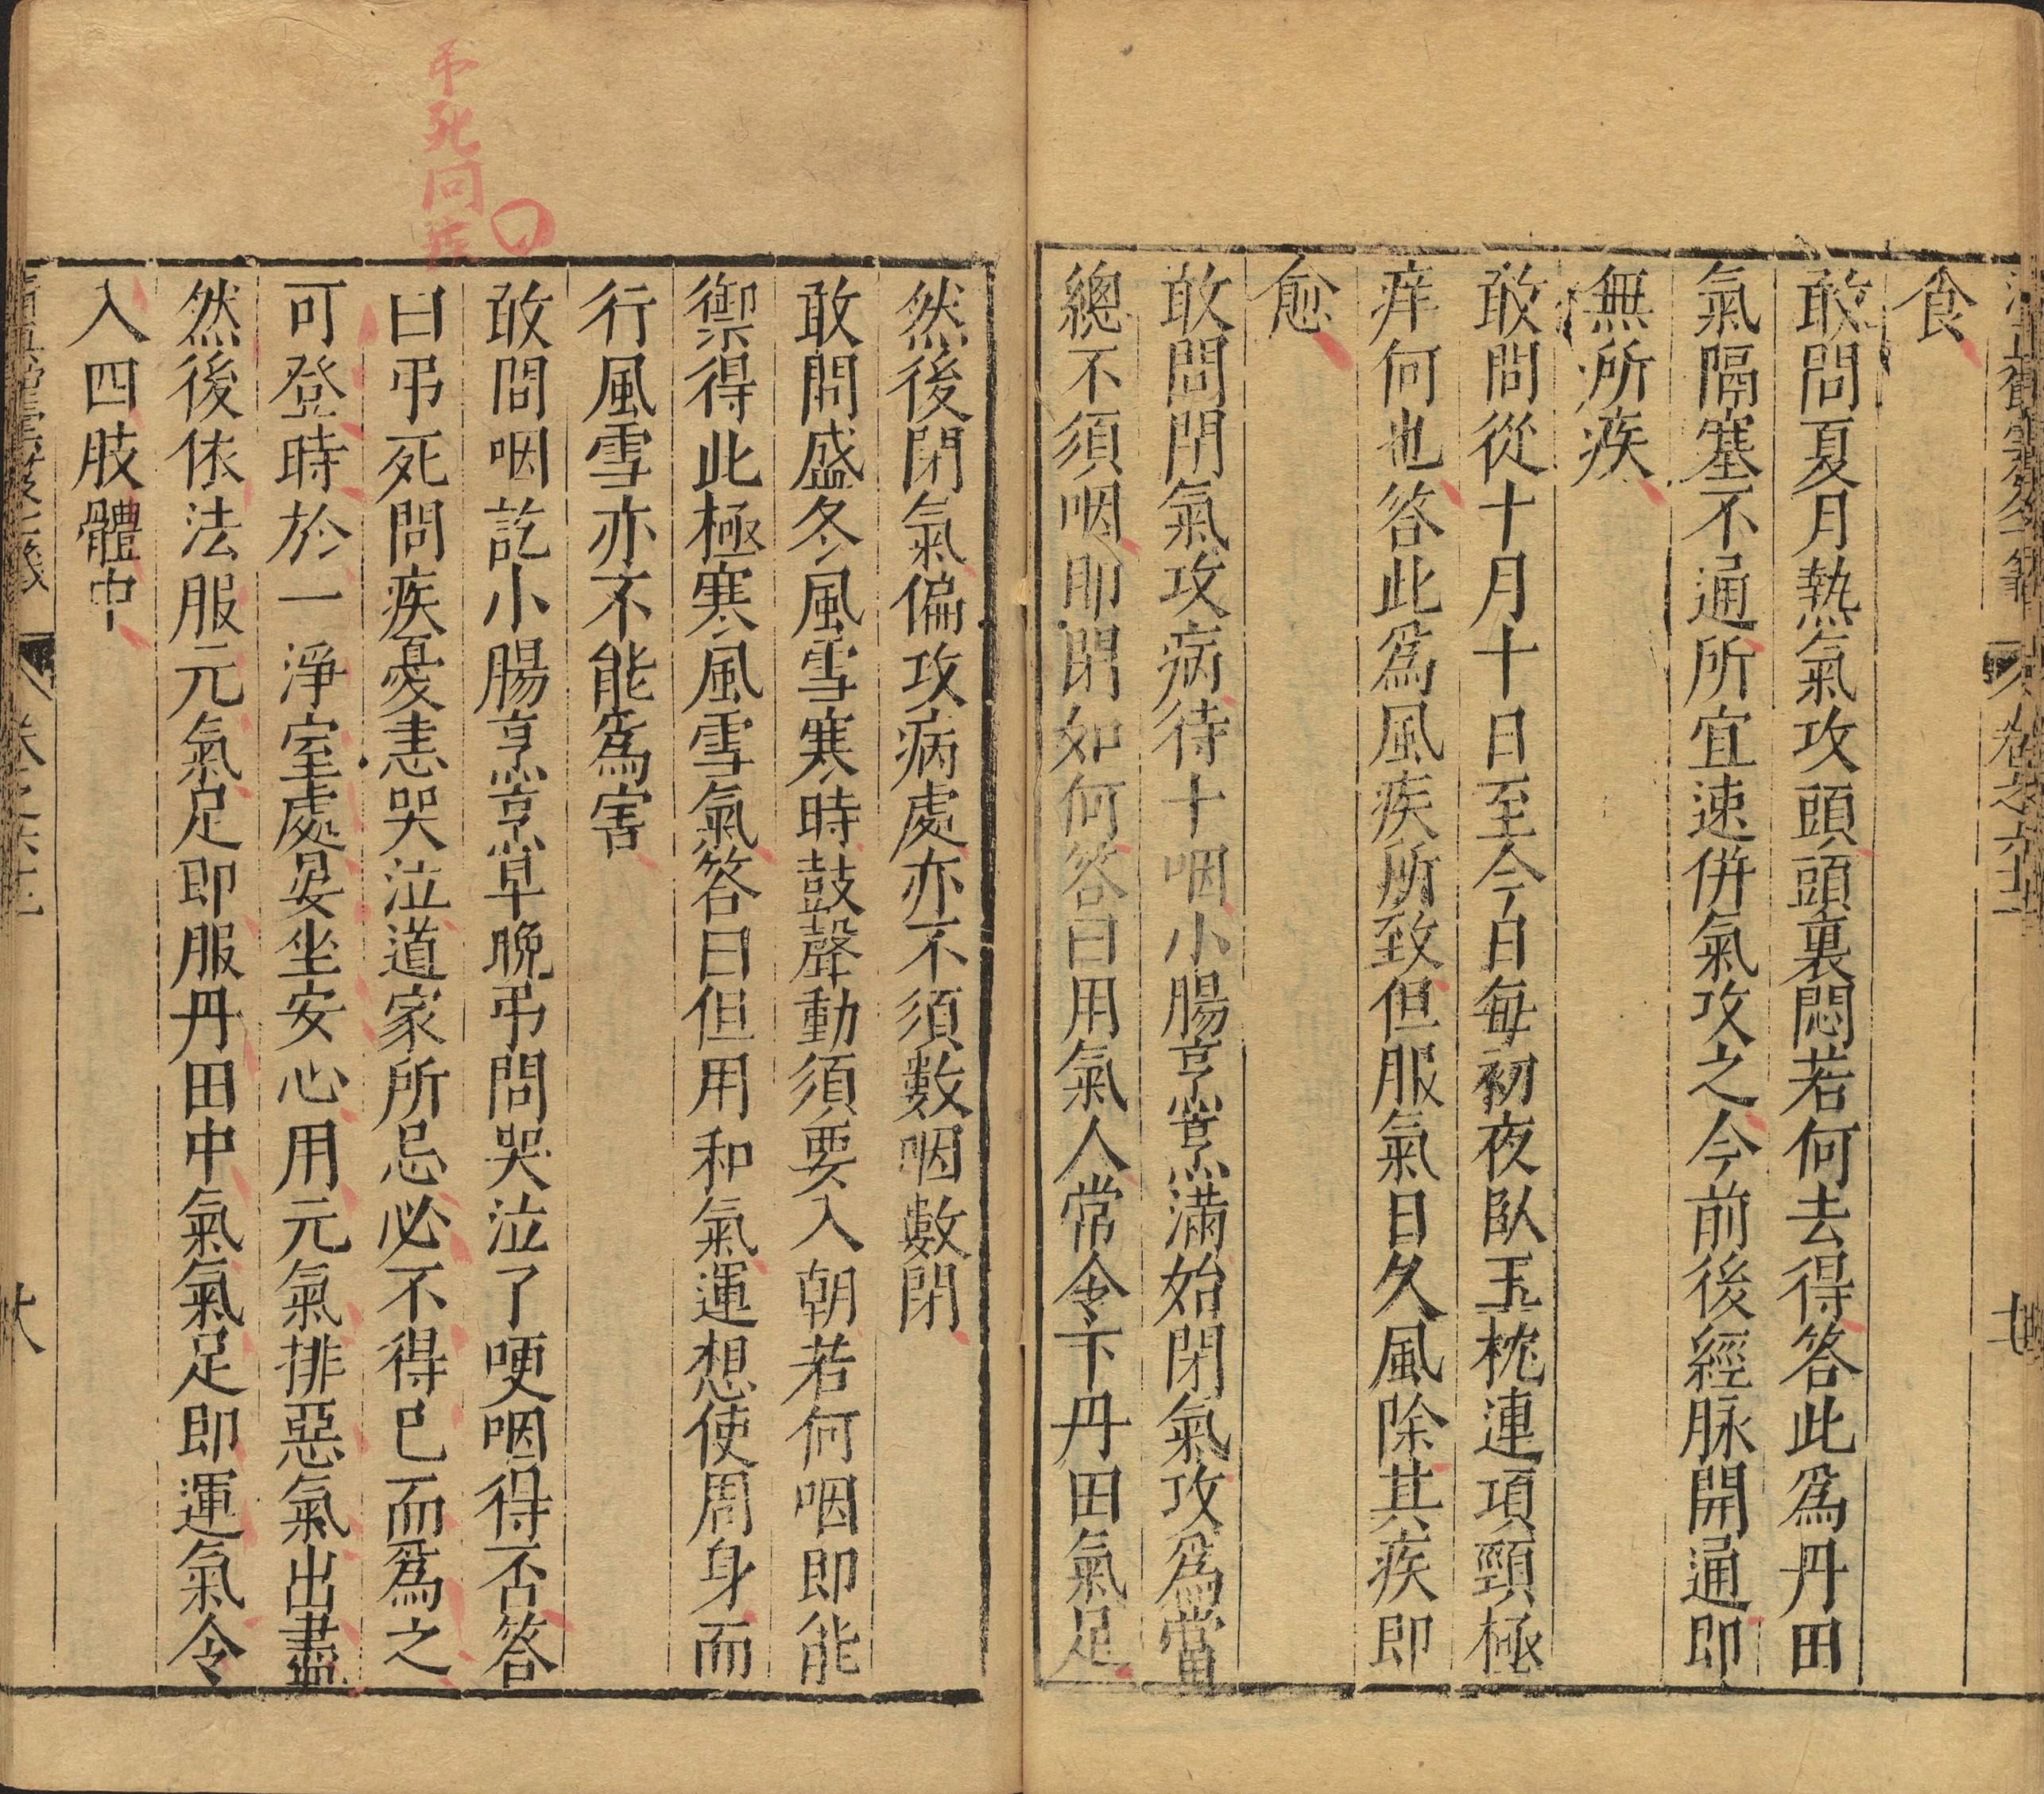 食
敢問夏月熱氣攻頭頭裏悶若何去得答此爲丹田
氣隔塞不通所宜速併氣攻之今前後經脉開通即
無所疾
敢問從十月十日至今日每初夜臥玉枕連項頸極
痒何也答此爲風疾所致但服氣日久風除其疾即
愈
敢問閉氣攻病待十咽小腸烹烹滿始閉氣攻爲當
總不須咽即閉如何答曰用氣人常令下丹田氣足
然後閉氣偏攻病處亦不須數咽數閉
敢問盛冬風雪寒時鼓聲動須要入朝若何咽即能
禦得此極寒風雪氣答曰但用和氣運想使周身而
行風雪亦不能爲害
敢問咽訖小腸烹烹早晩弔問哭泣了哽咽得否答
曰弔死問疾憂恚哭泣道家所忌必不得已而爲之
可登時於一淨室處晏坐安心用元氣排惡氣出盡
然後依法服元氣足即服丹田中氣氣足即運氣令
入四肢體中
弔死問疾
卷之六十二
七
卷之六十二
八